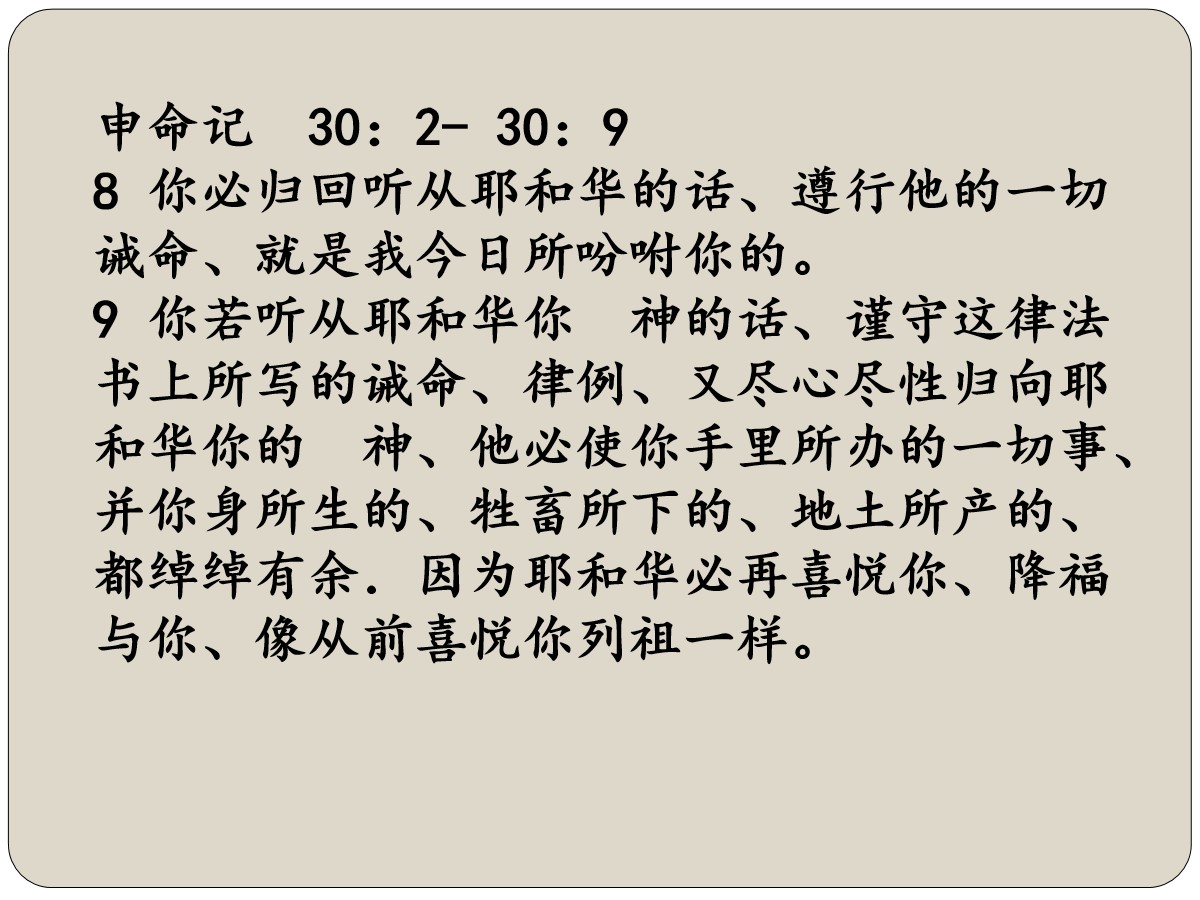 申命记　30：2- 30：9
8 你必归回听从耶和华的话、遵行他的一切
诫命、就是我今日所吩咐你的。
9 你若听从耶和华你　神的话、谨守这律法
书上所写的诫命、律例、又尽心尽性归向耶
和华你的　神、他必使你手里所办的一切事、
并你身所生的、牲畜所下的、地土所产的、
都绰绰有余．因为耶和华必再喜悦你、降福
与你、像从前喜悦你列祖一样。